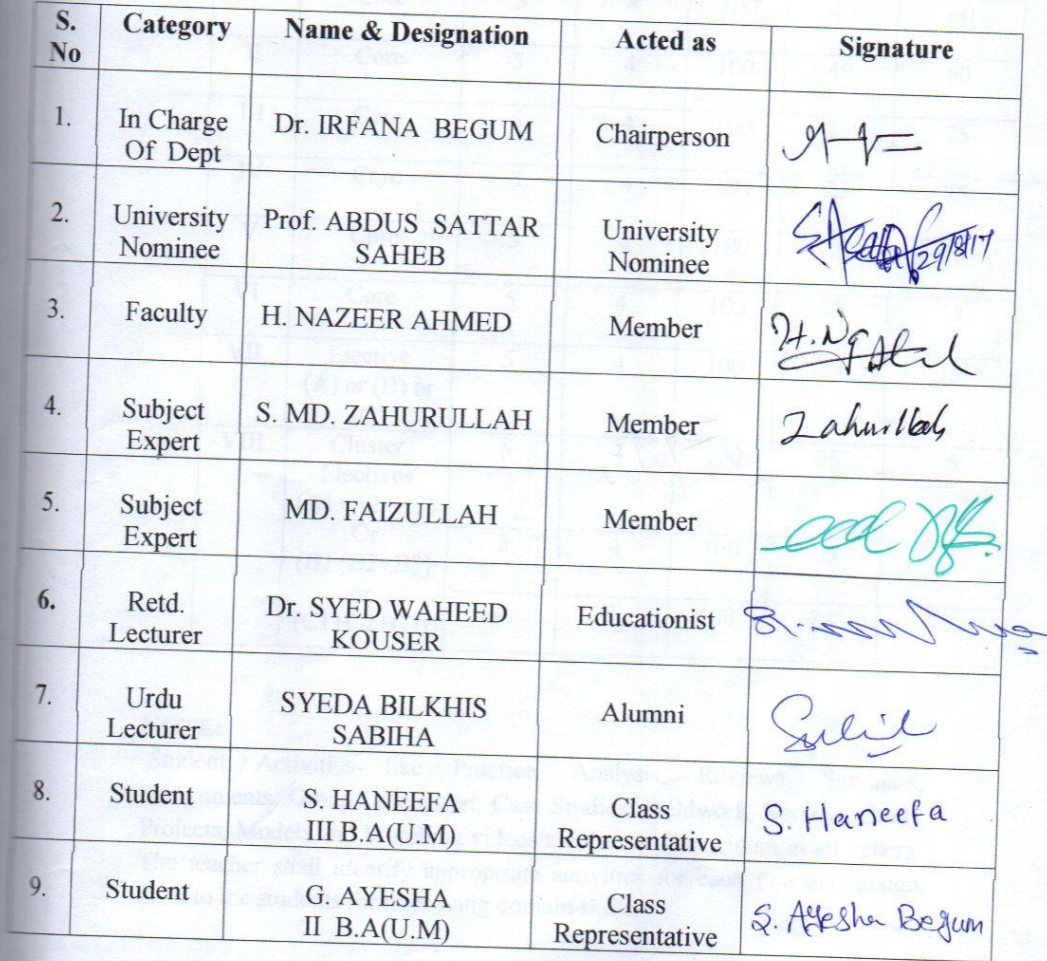 S. No Category Name & Designation Acted as Signature
1. In Charge Of Dept Dr. IRFANA BEGUM Chairperson
2. University Nominee Prof. ABDUS SATTAR SAHEB University Nominee 29/8/17
3. Faculty H. NAZEER AHMED Member
4. Subject Expert S. MD. ZAHURULLAH Member Zahurullah
5. Subject Expert MD. FAIZULLAH Member
6. Retd. Lecturer Dr. SYED WAHEED KOUSER Educationist
7. Urdu Lecturer SYEDA BILKHIS SABIHA Alumni
8. Student S. HANEEFA III B.A(U.M) Class Representative S. Haneefa
9. Student G. AYESHA II B.A(U.M) Class Representative Ayesha Begum